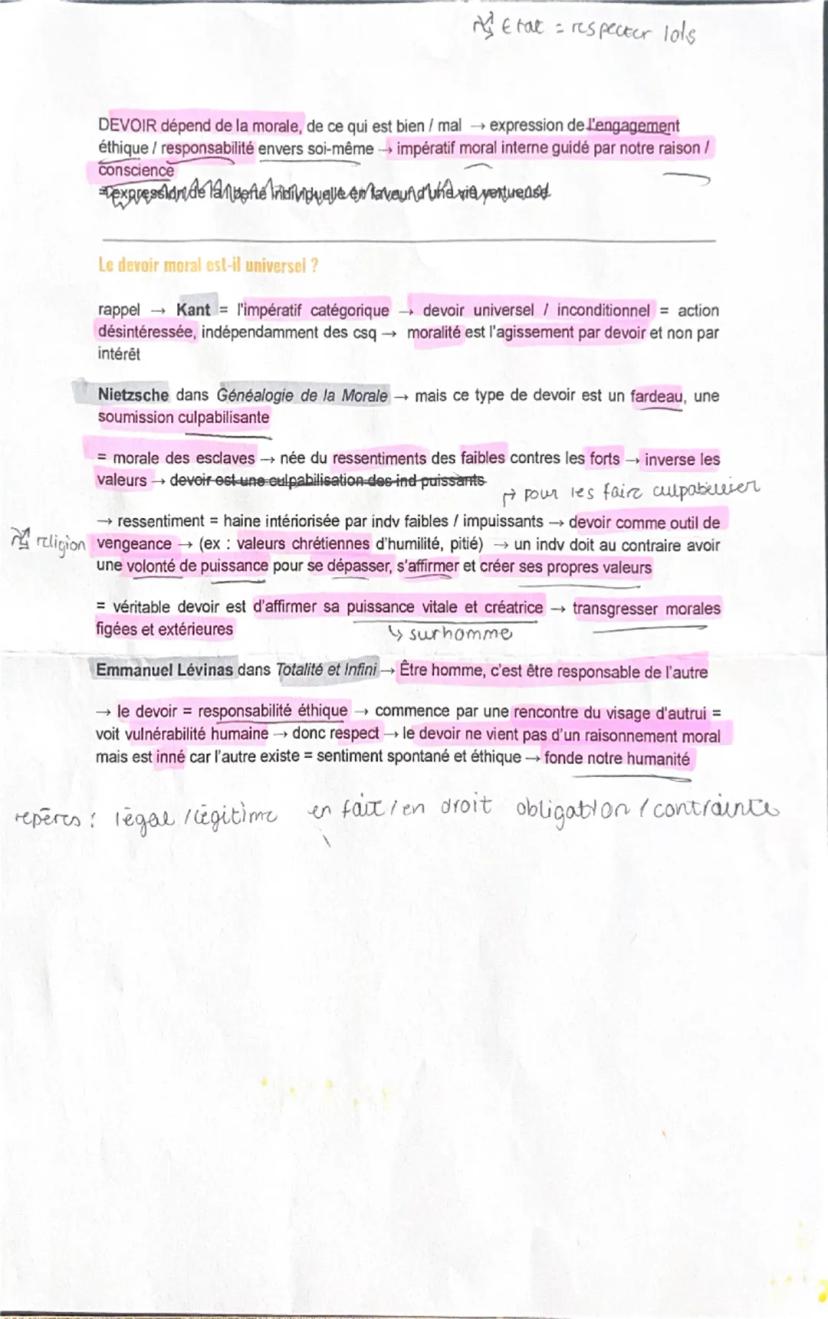 Etat = respecter lois
DEVOIR dépend de la morale, de ce qui est bien / mal → expression de l'engagement
éthique / responsabilité envers soi-même → impératif moral interne guidé par notre raison /
conscience
Le devoir moral est-il universel ?
rappel → Kant = l'impératif catégorique → devoir universel / inconditionnel = action
désintéressée, indépendamment des csq → moralité est l'agissement par devoir et non par
intérêt
Nietzsche dans Généalogie de la Morale → mais ce type de devoir est un fardeau, une
soumission culpabilisante
= morale des esclaves → née du ressentiments des faibles contres les forts → inverse les
valeurs → devoir est une culpabilisation des ind puissants
↱ pour les faire culpabiliser
→ ressentiment = haine intériorisée par indv faibles / impuissants → devoir comme outil de
religion
vengeance → (ex : valeurs chrétiennes d'humilité, pitié) → un indv doit au contraire avoir
une volonté de puissance pour se dépasser, s'affirmer et créer ses propres valeurs
= véritable devoir est d'affirmer sa puissance vitale et créatrice → transgresser morales
figées et extérieures
↳ surhomme
Emmanuel Lévinas dans Totalité et Infini → Être homme, c'est être responsable de l'autre
→ le devoir = responsabilité éthique → commence par une rencontre du visage d'autrui =
voit vulnérabilité humaine → donc respect → le devoir ne vient pas d'un raisonnement moral
mais est inné car l'autre existe = sentiment spontané et éthique → fonde notre humanité
repères : légal / légitime en fait / en droit obligation / contrainte